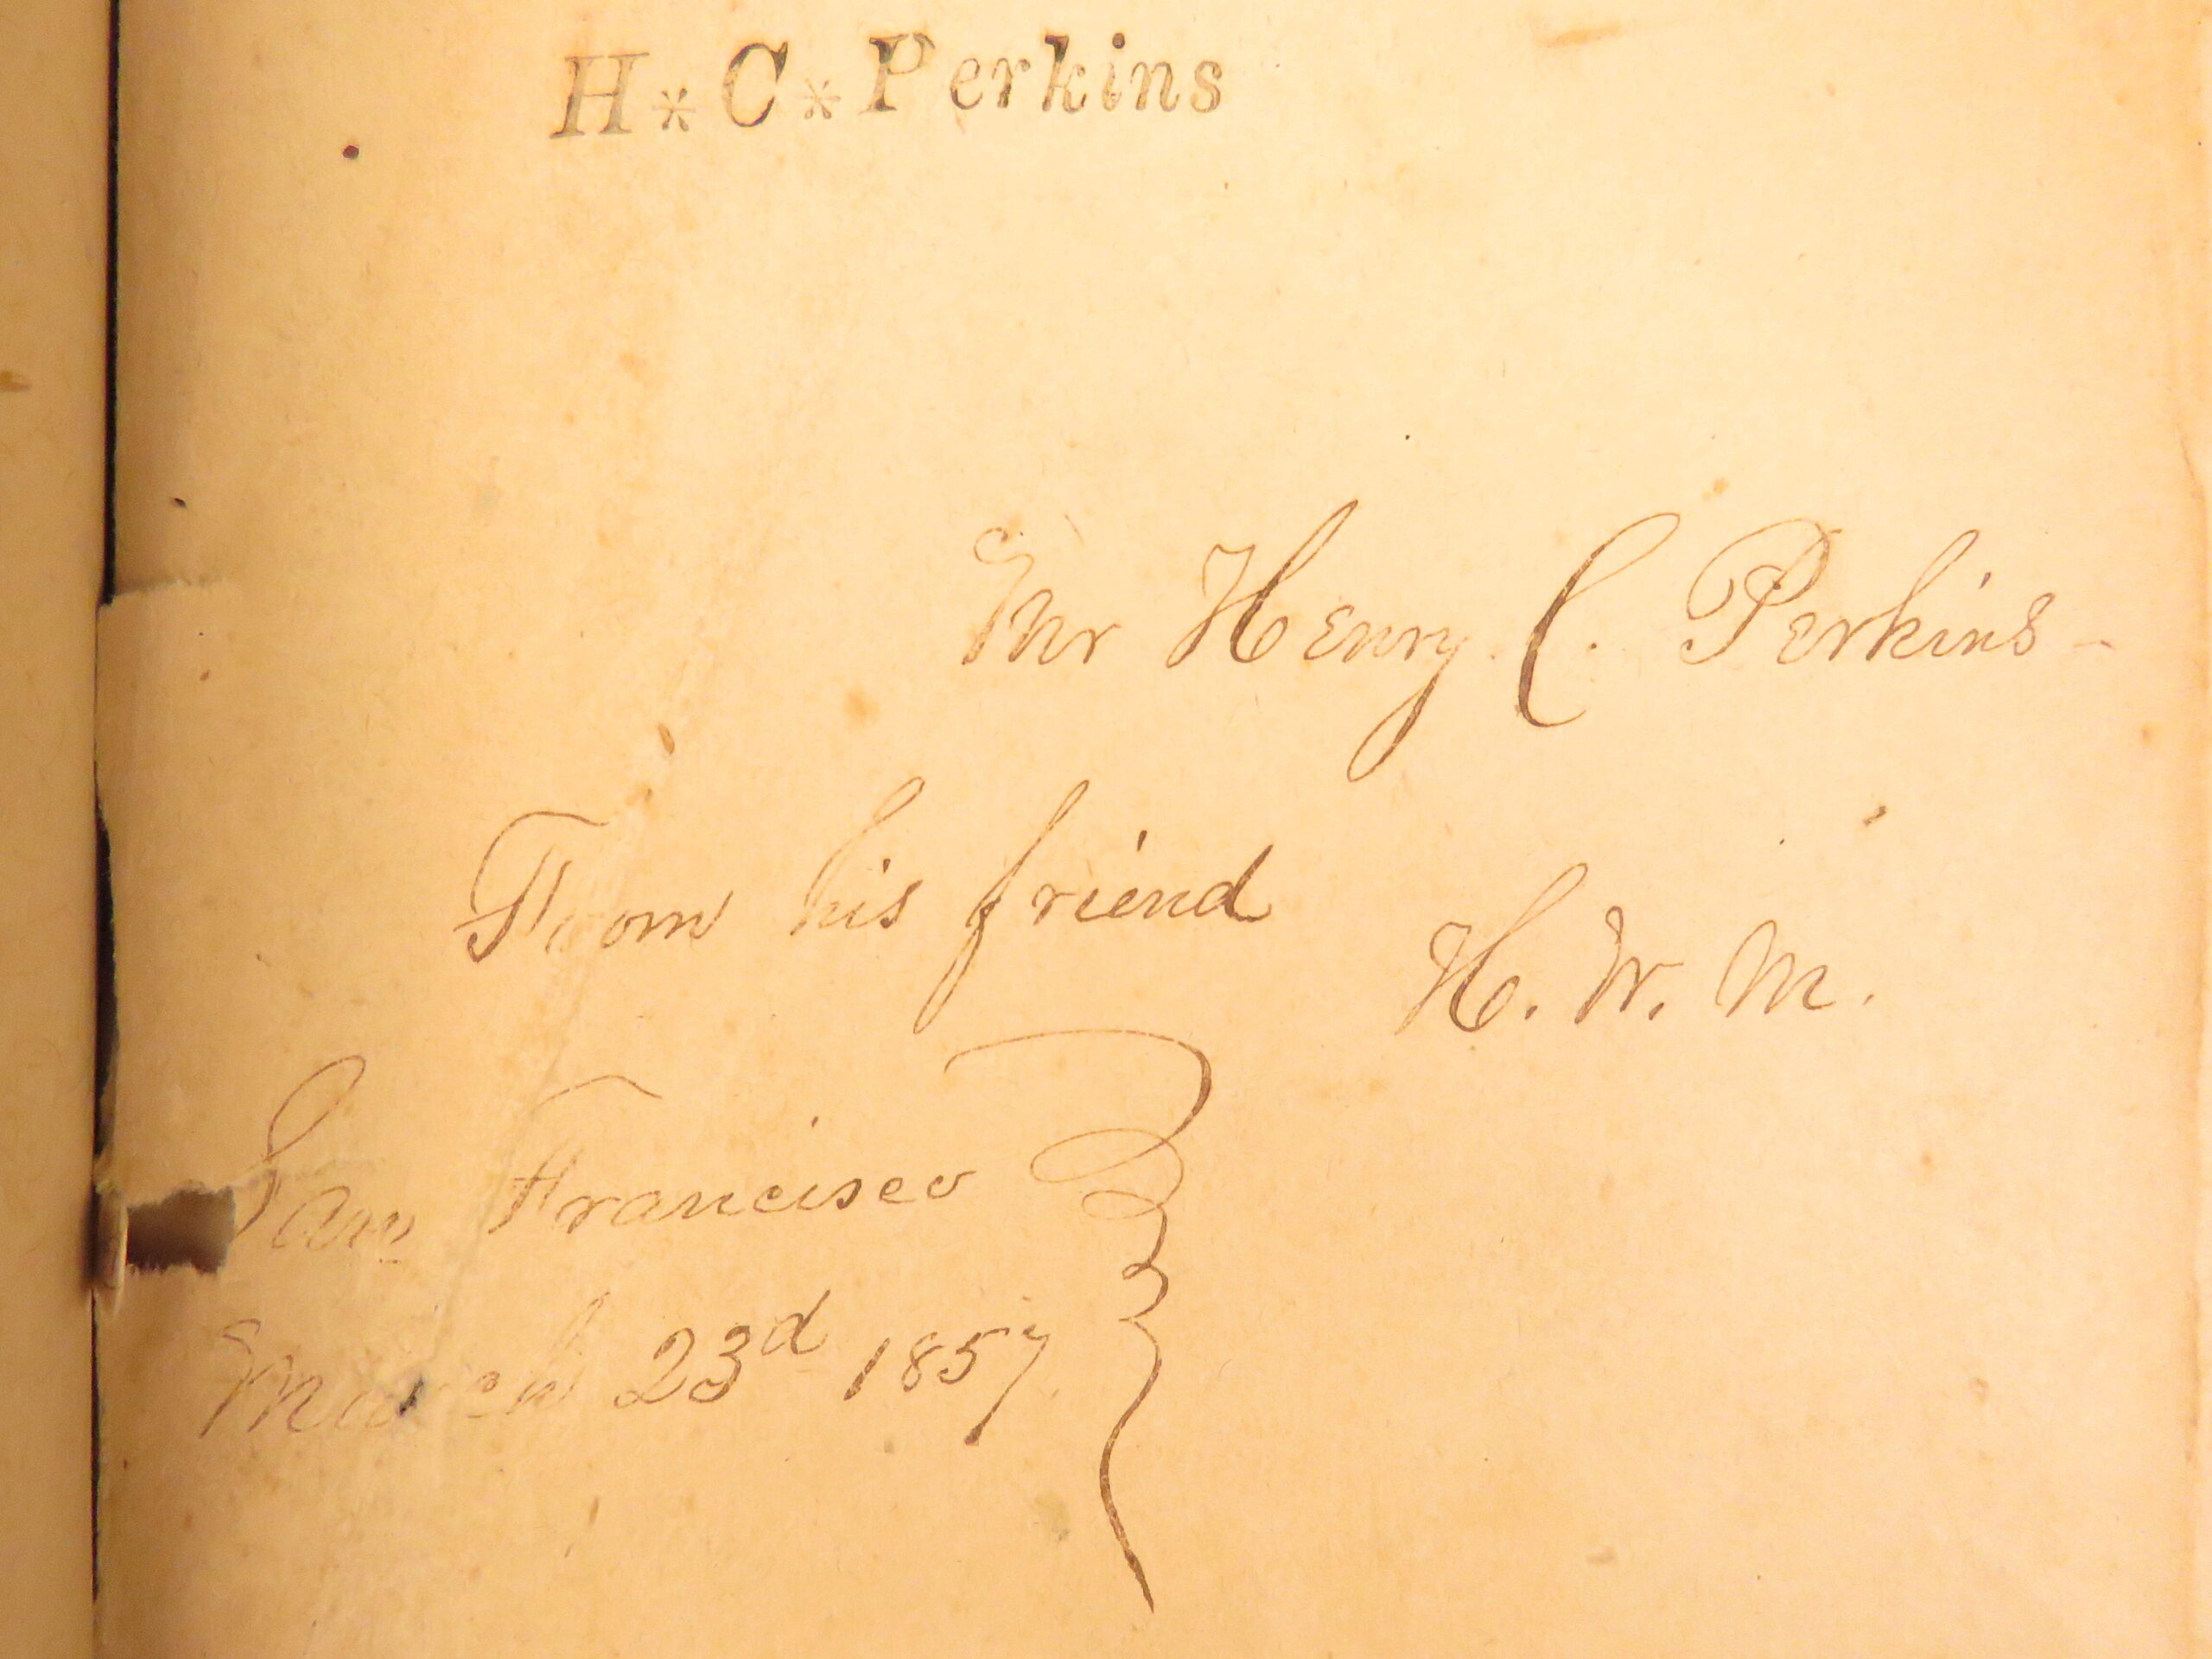 H*C*Perkins
Mr Henry C. Perkins-
From his friend
H. W. M.
San Francisco
March 23d 1857